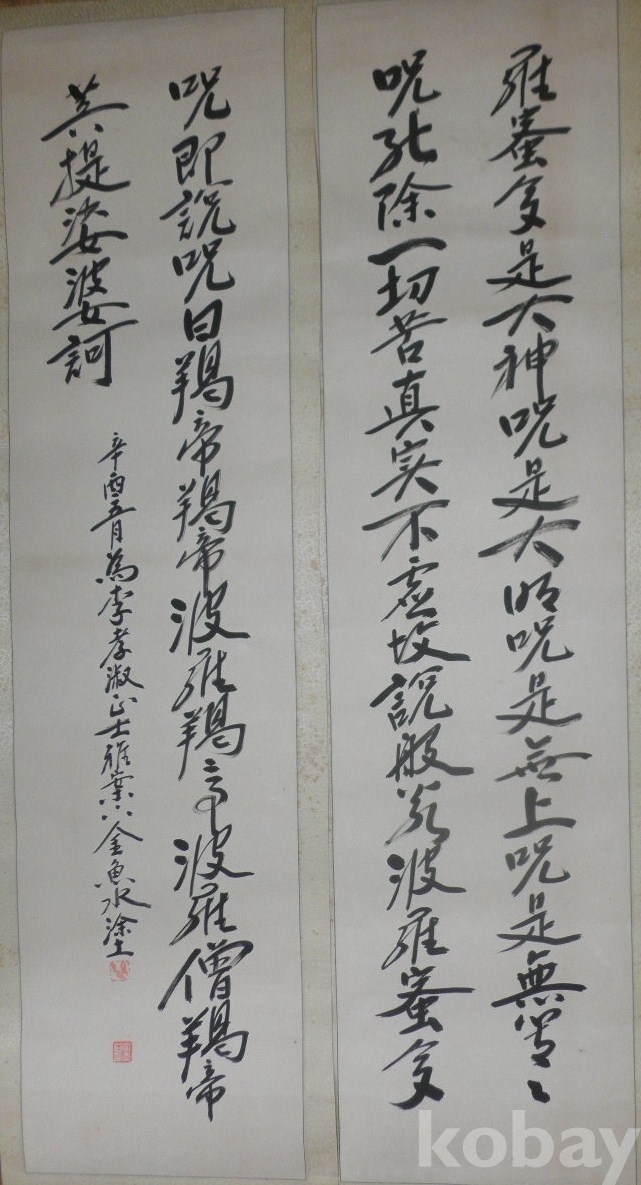 羅蜜多是大神呪是大明呪是無上呪是無等々
呪能除一切苦真実不虚故説般若波羅蜜多
呪即説呪曰羯帝羯帝波羅羯帝波羅僧羯帝
菩提娑婆訶
辛酉五月為李孝淑士雅金魚水塗
kobay